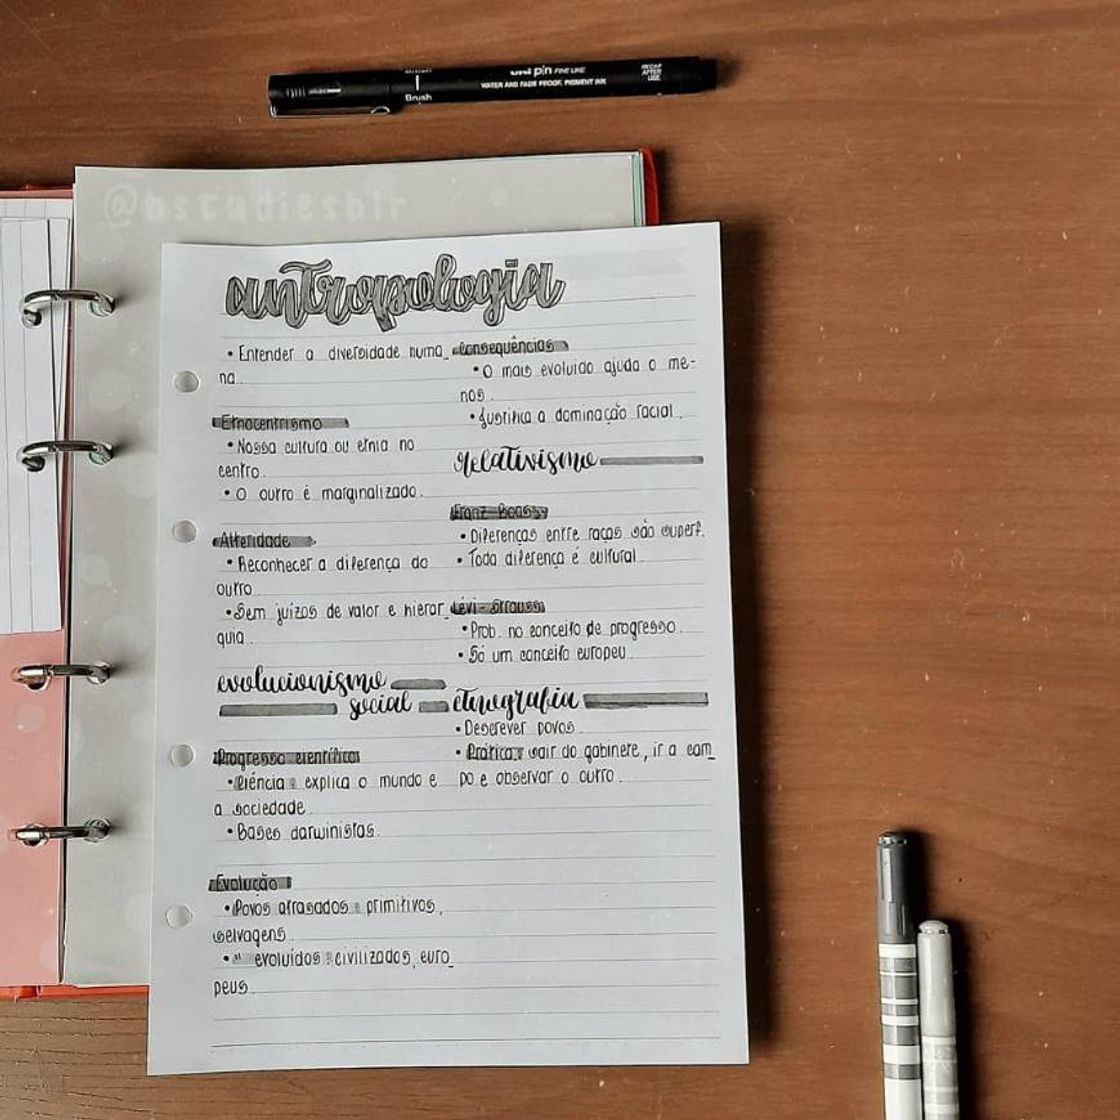 Brush
uni pin FINE LINE
WATER AND FADE PROOF, PIGMENT INK
RECAP
AFTER
USE
@bstudiesblr
antropologia
• Entender a diversidade huma_
na.
Etnocentrismo
• Nossa cultura ou etnia no
centro.
• O outro é marginalizado.
Alteridade
• Reconhecer a diferença do
outro
• Sem juízos de valor e hierar_
quia.
evolucionismo
social
Progresso científico
• Ciência: explica o mundo e
a sociedade
• Bases darwinistas.
Evolução
• Povos atrasados: primitivos,
selvagens
• " evoluídos: civilizados, euro_
peus
Consequências
• O mais evoluído ajuda o me-
nos.
• Justifica a dominação racial.
relativismo
Franz Boas
• Diferenças entre raças são superf.
• Toda diferença é cultural
Lévi-Strauss
• Prob. no conceito de progresso.
• Só um conceito europeu
etnografia
• Descrever povos
• Prática: sair do gabinete, ir a cam_
po e observar o outro.